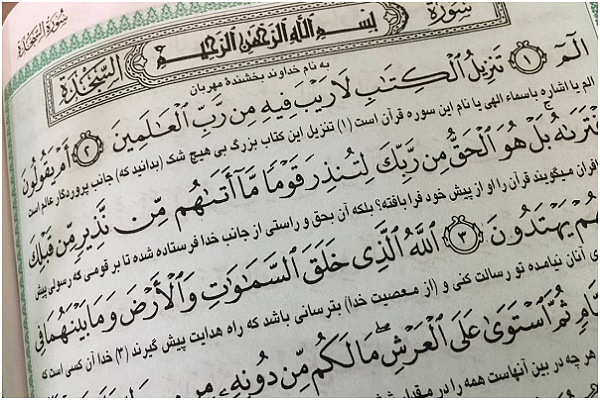 سُورَةُ السَّجْدَةِ
سُورَةُ بِسْمِ اللَّهِ الرَّحْمَٰنِ الرَّحِيمِ السَّجْدَةِ
به نام خداوند بخشندهٔ مهربان
الٓمٓ ۝١ تَنزِيلُ الْكِتَابِ لَا رَيْبَ فِيهِ مِن رَّبِّ الْعَالَمِينَ ۝٢ أَمْ يَقُولُونَ
الم یا اشاره باسماء الهی یا نام این سوره قرآن است (۱) تنزیل این کتاب بزرگ بی هیچ شک (بدانید که) جانب پروردگار عالم است
افْتَرَاهُ ۚ بَلْ هُوَ الْحَقُّ مِن رَّبِّكَ لِتُنذِرَ قَوْمًا مَّا أَتَاهُم مِّن نَّذِيرٍ مِّن قَبْلِكَ
کافران میگویند قرآن را او از پیش خود فرا بافته؟ بلکه آن بحق و راستی از جانب خدا فرستاده شده تا بر قومی که رسولی پیش
هُمْ يَهْتَدُونَ ۝٣ اللَّهُ الَّذِي خَلَقَ السَّمَاوَاتِ وَالْأَرْضَ وَمَا بَيْنَهُمَا فِي
ی آنان نیامده تو رسالت کنی و (از معصیت خدا) بترسانی باشد که راه هدایت پیش گیرند (۳) خدا آن کسی است که
ثُمَّ اسْتَوَىٰ عَلَى الْعَرْشِ ۖ مَا لَكُم مِّن دُونِهِ مِن
هر چه در بین آنهاست همه را در مقدار